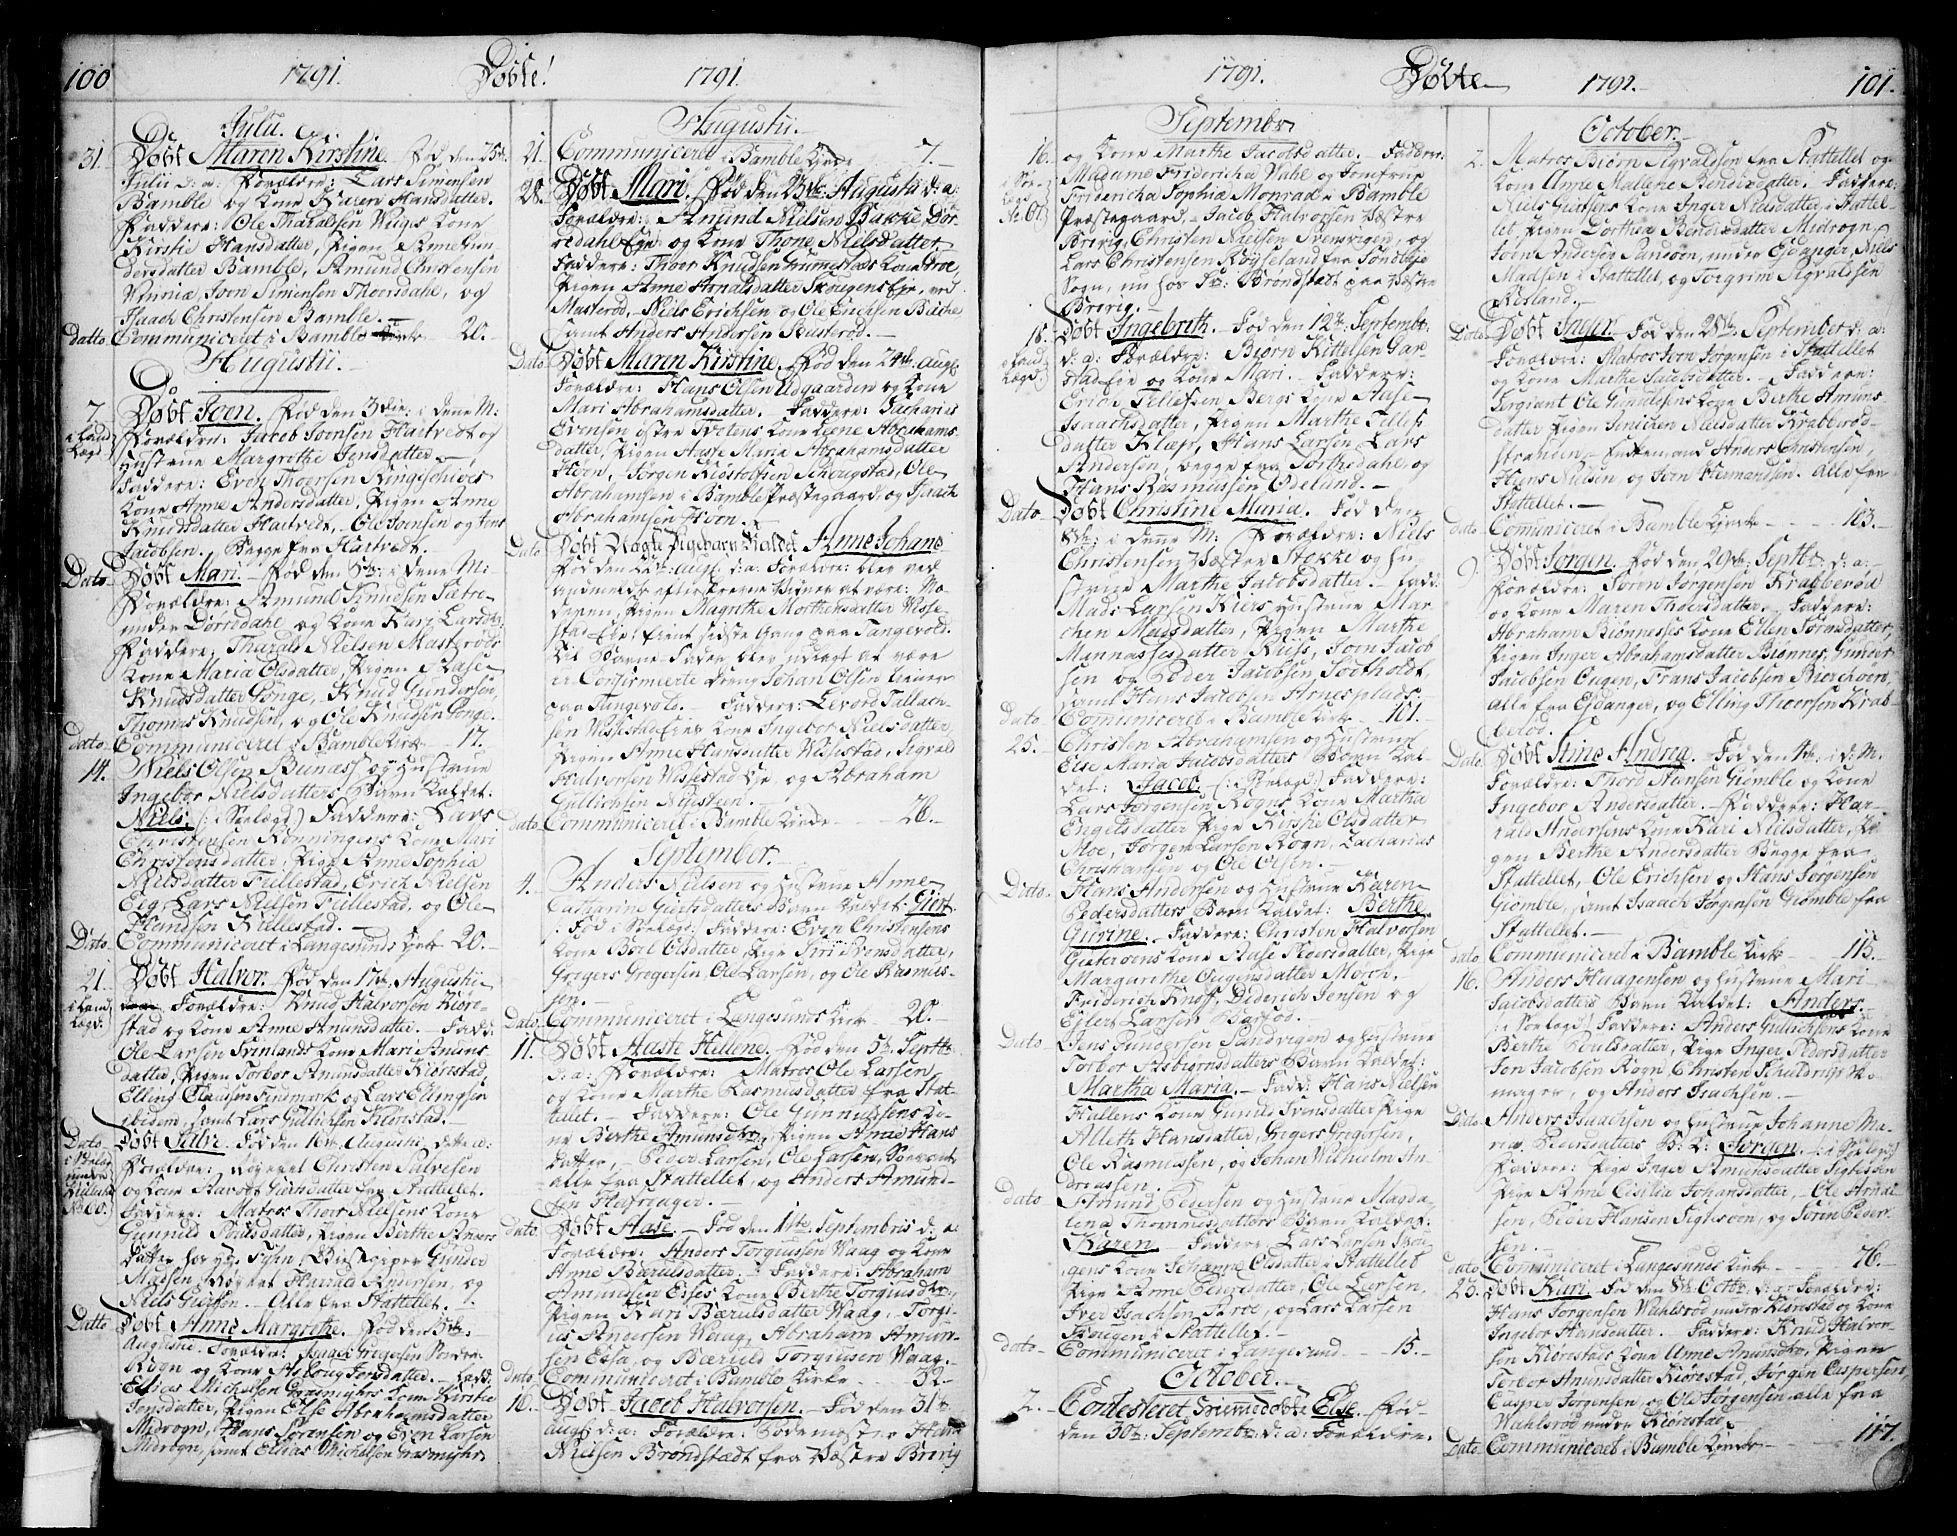 100 1791. Døbte! 1791.
Julii.
31. Døbt Maren Kirstine. Fød den 25de
Julii d: a: Forældre: Lars Simensen
Bamble og Kone Karen Hansdatter.
Faddere: Ole Tharalsen Kone
Kirstie Hansdatter, Pigen Anne Gun-
dersdatter Bamble, Amund Christensen
Vinie, Joen Simensen Thorsdahl, og
Isaach Christensen Bamble.
Datto Communiceret i Bamble Kirke 20.
Augustii.
7. Døbt Joen. Fød den 3die i dene M:
i Land Forældre: Jacob Joensen Hartvedt og
Lægd. Hustrue Margrethe Jensdatter.
Faddere: Even Thorsen
Kone Anne Andersdatter, Pigen Anne
Knudsdatter Hartvedt, Ole Joensen og Jens
Jacobsen. Begge fra Hartvedt.
Dato Døbt Mari. Fød den 5te i dene M:
Forældre: Amund Knudsen Sætre
under Dørsdahl og Kone Kari Larsdtr.
Faddere: Tharald Nielsen Mastrøds
Kone Maria Olsdatter, Pigen Aase
Knudsdatter Gonge, Knud Gundersen,
Thomas Knudsen, og Ole Knudsen Gonge.
Dato Communiceret i Bamble Kirke 17.
14. Niels Olsen Bunæss og Hustrue
Ingebor Nielsdatters Barn kaldet:
Niels. (: i Søelægd:) Faddere: Lars
Christensen Rønningens Kone Mari
Christensdatter, Pige Anne Sophia
Nielsdatter Fillestad, Erich Nielsen
Eig, Lars Nielsen Fillestad, og Ole
Hansen Killestad.
Dito Communiceret i Langesunds Kirke 20.
21. Døbt Halvor. Fød den 17de Augustii
i Land Forældre: Knud Halvorsen Kiøre-
Lægd: stad og Kone Anne Anunsdatter. Fadd:
Ole Larsen Svinlands Kone Mari Anuns-
datter, Pigen Torbor Amunsdatter Kiørestad,
Elling Clausen Findmark og Lars Ellingsen
ibidem, samt Lars Gullichsen Kiørestad.
Dato Døbt Salve. Fød den 16de Augustii dette a:
Forældre: Christen Salvesen
og Kone Giertsdatter fra Stattellet.
No. 60. Faddere: Matros Thor Nielsens Kone
Gunnild Poulsdatter, Pigen Berthe Anders
datter Gunder
Madsen, Harrald Andersen, og
Niels Giertsen. Alle fra Stattellet.
Datto Døbt Anne Margrethe. Fød den 15de
Augustii. Forældre: Isaac Gregersen
Rogn og Kone Aslaug Jensdatter. Fadd:
Ellias Michelsen Kone Kirstie
Jensdatter, Pigen Else Abrahamsdatter
Midrogn, Hans Sørensen og Even Larsen
Midrogn, samt Ellias Michelsen
Augustii.
21. Communiceret i Bamble Kirke 7.
28. Døbt Mari. Fød den 23de Augustii d: a:
Forældre: Amund Nielsen Bakke Dør-
redahl Eje og Kone Thone Nielsdatter.
Faddere: Thor Knudsen Kone
Pigen Anne Arnalsdatter Skougens Eje, ved
Masterød, Niels Erichsen og Ole Erichsen Bække
samt Anders Andersen Rusterød.
Dato Døbt Maren Kirstine. Fød den 24de Aug:
Forældre: Hans Olsen Udgaarden og Kone
Mari Abrahamsdatter. Faddere: Zacharias
Evensen østre Tvetens Kone Lene Abrahams-
datter, Pigen Aase Maria Abrahamsdatter
Hvon, Jørgen Kiøstolfsen Schougstad, Ole
Abrahamsen i Bamble Præstegaard, og Isach
Abrahamsen Hvon.
Dato Døbt Uægte Pigebarn kaldet Anne Johane
Fød den 21de Aug: d: a: Forældre: blev ved
anmeldt efterskrevne Personer at være: Mo-
deren, Pigen Magrethe Morthensdatter Visse-
stad Eje: tient sidste Gang paa Tangevold.
Til Barne-Fader blev udlagt at være
er Confirmerte Dreng Johan Olsen tienner
paa Tangevold. Faddere: Levord Tallach-
sen Wissestad Ejes Kone Ingebor Nielsdatter,
Pigen Anne Hansdatter Wissestad, Sigvald
Halvorsen Wissestad Eje og Abraham
Gullichsen Nysteen.
Dato Communiceret i Bamble Kirke 26.
September.
4. Anders Nielsen og Hustrue Anne
Catharine Giertsdatters Barn kaldet: Giert.
(: Fød i Søelægd:) Faddere: Even Christensens
Kone Boel Olsdatter, Pige Siri Svensdatter,
Gregers Gregersen, Ole Larsen, og Ole Rasmus-
sen.
Dato Communiceret i Langesunds Kirke 20.
11. Døbt Aaste Hellene. Fød den 5te Septbr.
d: a: Forældre: Matros Ole Larsen
og Kone Marthe Rasmusdatter fra Stat-
tellet. Faddere: Ole Gunnussens Ko-
ne Berthe Amunsdtr, Pigen Anne Hans
datter, Peder Larsen, Ole Larsen,
alle fra Stattellet, og Anders Amund-
sen Hafsager.
Dato Døbt Aase. Fød den 1ste Septembris d: a:
Forældre: Anders Torgiussen Waag og Kone
Anne Bærulsdatter. Faddere: Abraham
Amundsen Esses Kone Berthe Torgiusdtr,
Pigen Kari Bærulsdatter Waag, Torgi-
us Andersen Waag, Abraham Amun-
sen Essa, og Bæruld Torgiussen Waag.
Dato Communiceret i Bamble Kirke 32.
16. Døbt Jacob Halvorsen. Fød den 31te
Aug: d: a: Forældre: Bødemester Hans
Nielsen Brøndstædt fra Wæstre Brevig
1791. Døbte 1791. 101.
Septembr:
16. og Kone Marthe Jacobsdatter. Faddere:
i Søe- Madame Fridericha Wahl og Jomfrue
Lægd Fridericha Sophiæ Monrad i Bamble
No. 61. Præstegaard, Jacob Halvorsen Wæstre
Brevig, Christen Nielsen Svenvigen, og
Lars Christensen Røyseland fra Søndleje
Sogn, nu hos Sr: Brøndstedt paa Wæstre
Brevig.
18. Døbt Ingebreth. Fød den 12te Septembr:
i Land d: a: Forældre: Biørn Kittelsen Gar-
Lægd. stad Eje og Kone Mari. Faddere:
Erich Tellefsen Bergs Kone Aase
Isaachsdatter, Pigen Marthe Tellefs
datter Klæp, Hans Larsen, Lars
Andersen, begge fra Torthedahl, og
Hans Rasmussen Ødelund.
Dato Døbt Christine Maria. Fød den
8de i dene M: Forældre: Niels
Christensen Wæstre Stokke og Hu-
strue Marthe Jacobsdatter. Fadd:
Mads Larsen Kiers Hustrue Mar-
chen Madsdatter, Pigen Marthe
Mannassesdatter Næss, Joen Jacob
sen og Peder Jacobsen Sødtholdt,
samt Hans Jacobsen Arnesplads.
Dato Communiceret i Bamble Kirke 101.
25. Christen Abrahamsen og Hustrue
Else Maria Jacobsdatters Barn kal-
det: Jacob. (: i Søelægd:) Faddere:
Lars Jørgensen Rogns Kone Martha
Engelsdatter, Pige Kirstie Olsdatter
Moe, Jørgen Larsen Rogn, Zacharias
Christiansen og Ole Olsen.
Dato Hans Andersen og Hustrue Karen
Pedersdatters Barn kaldet: Berthe
Gurine. Faddere: Christen Halvorsen
Gieterøens Kone Aase Pedersdatter, Pige
Margarithe Ougensdatter Morch,
Friderich Knoff, Diderich Jensen og
Ejlert Larsen Barfod.
Dato Jens Gundersen Sandvigen og Hustrue
Torbor Asbiørnsdatters Barn kaldet:
Martha Maria. Fadd: Hans Nielsen
Hallens Kone Gunild Svensdatter, Pige
Alleth Hansdatter, Grigers Grigersen,
Ole Rasmussen, og Johan Wilhelm An-
dreassen.
Dato Amund Pedersen og Hustrue Magda-
lena Thommesdatters Barn kaldet:
Karen. Faddere: Lars Larsen Skou-
gens Kone Johanne Olsdatter i Stattellet
Pige Anne Pedersdatter, Ole Larsen,
Iver Isachsen Aaroe, og Lars Larsen
Skougen i Stattellet.
Dato Communiceret i Langesund 15.
October.
2. Contesteret Hiemmedøbte Else. Fød
den 30te Septembr: d: a: Forældre:
October.
2. Matros Biørn Sigvaldsen fra Stattellet og
Kone Anne Mallene Bendixdatter. Faddere:
Niels Giertsens Kone Inger Nielsdatter i Stattel-
let, Pigen Dorthea Bendixdatter Midrogn,
Joen Andersen Sandøen, under Ejdanger, Niels
Madsen i Stattellet, og Torgrim Sigvaldsen
Rosland.
Dato Døbt Inger. Fød den 28de September d: a:
Forældre: Matros Joen Jørgensen i Stattellet
og Kone Marthe Jacobsdatter. Faddere:
Sergiant Ole Gunulsens Kone Berthe Amuns
datter, Pigen Jenichen Nielsdatter Krabberød-
stranden, Anders Christensen,
Hans Nielsen, og Joen Hermandsen. Alle fra
Stattellet.
Dato Comuniceret i Bamble Kirke 103.
9. Døbt Jørgen. Fød den 29de Septbr: d: a:
Forældre: Søren Jørgensen Krabberød
og Kone Maren Thorsdatter. Faddere:
Abraham Biønnesses Kone Ellen Sørensdatter,
Pigen Inger Abrahamsdatter Biønnes, Gunder
Jacobsen Ougen, Frans Jacobsen Biørchoen,
alle fra Ejdanger, og Elling Thorsen Krab-
berød.
Dato Døbt Stine Andrea. Fød den 4de i d: M:
Forældre: Thord Hansen Giømble og Kone
Ingebor Andersdatter. Faddere: Har-
rald Andersens Kone Kari Nielsdatter, Pi-
gen Berthe Andersdatter Begge fra
Stattellet, Ole Erichsen og Hans Jørgensen
Giømble, samt Isaach Jørgensen Giømble fra
Stattellet.
Dato Communiceret i Bamble Kirke 115.
16. Anders Haagensen og Hustrue Mari
Jacobsdatters Barn kaldet: Anders.
(: i Søelægd:) Faddere: Anders Gullichsens Kone
Berthe Poulsdatter, Pige Inger Pedersdatter
Jon Jacobsen Rogn, Christen Schieldrigs Ki-
mager, og Anders Isachsen.
Dato Anders Isaachsen og Hustrue Johanne Ma-
ries Pedersdatters B: K: Jørgen. (: i Søelægd:)
Faddere: Pige Inger Amundsdatter
Pige Anne Cicilia Johansdatter, Ole Arnt-
sen, Peder Hansen Sighsøen, og Søren Peder-
sen.
Dato Communiceret i Langesunds Kirke 76.
23. Døbt Kari. Fød den 8de Octbr: d: a: Forældre:
Hans Jørgensen Wahlsrød under Kiørestad og Kone
Ingebor Hansdatter. Faddere: Knud Halvor-
sen Kiørestads Kone Anne Anunsdtr, Pigen
Torbor Anunsdatter Kiørestad, Jørgen Caspersen,
Casper Jørgensen, og Ole Jørgensen alle fra
Wahlsrød under Kiørestad.
Dato Communiceret i Bamble Kirke 117.